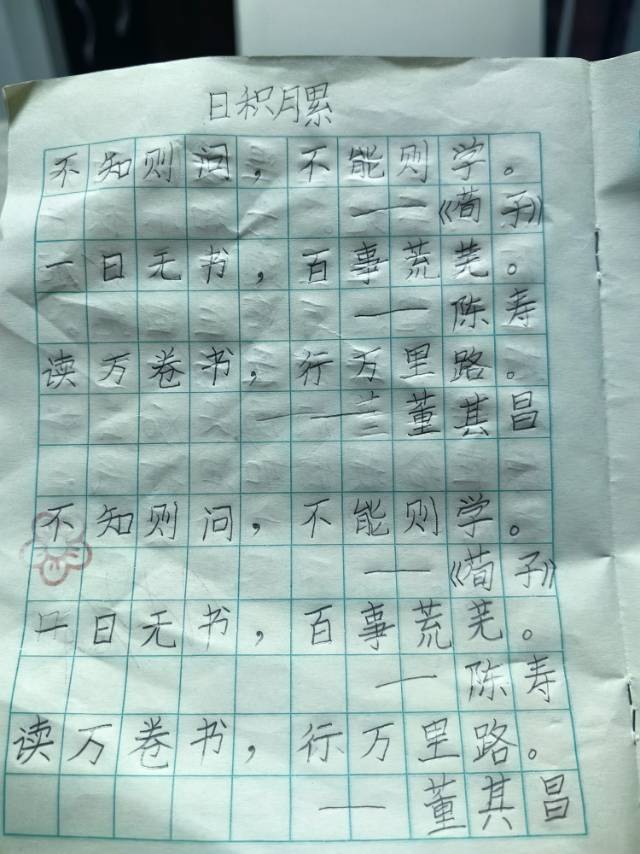 日积月累
不知则问，不能则学。
——《荀子》
一日无书，百事荒芜。
——陈寿
读万卷书，行万里路。
——董其昌
不知则问，不能则学。
——《荀子》
一日无书，百事荒芜。
——陈寿
读万卷书，行万里路。
——董其昌